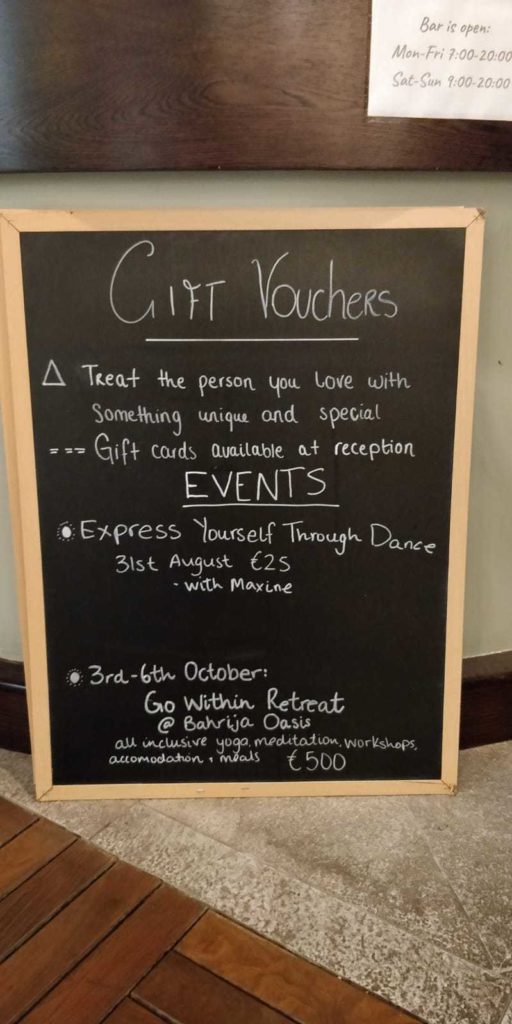 Bar is open:
Mon-Fri 7:00-20:00
Sat-Sun 9:00-20:00
GIFT VOUCHERS
Treat the person you love with
something unique and special
=== Gift cards available at reception
EVENTS
Express Yourself Through Dance
31st August €25
- with Maxine
3rd-6th October:
Go Within Retreat
@ Bahrija Oasis
all inclusive yoga, meditation, workshops,
accomodation + meals €500